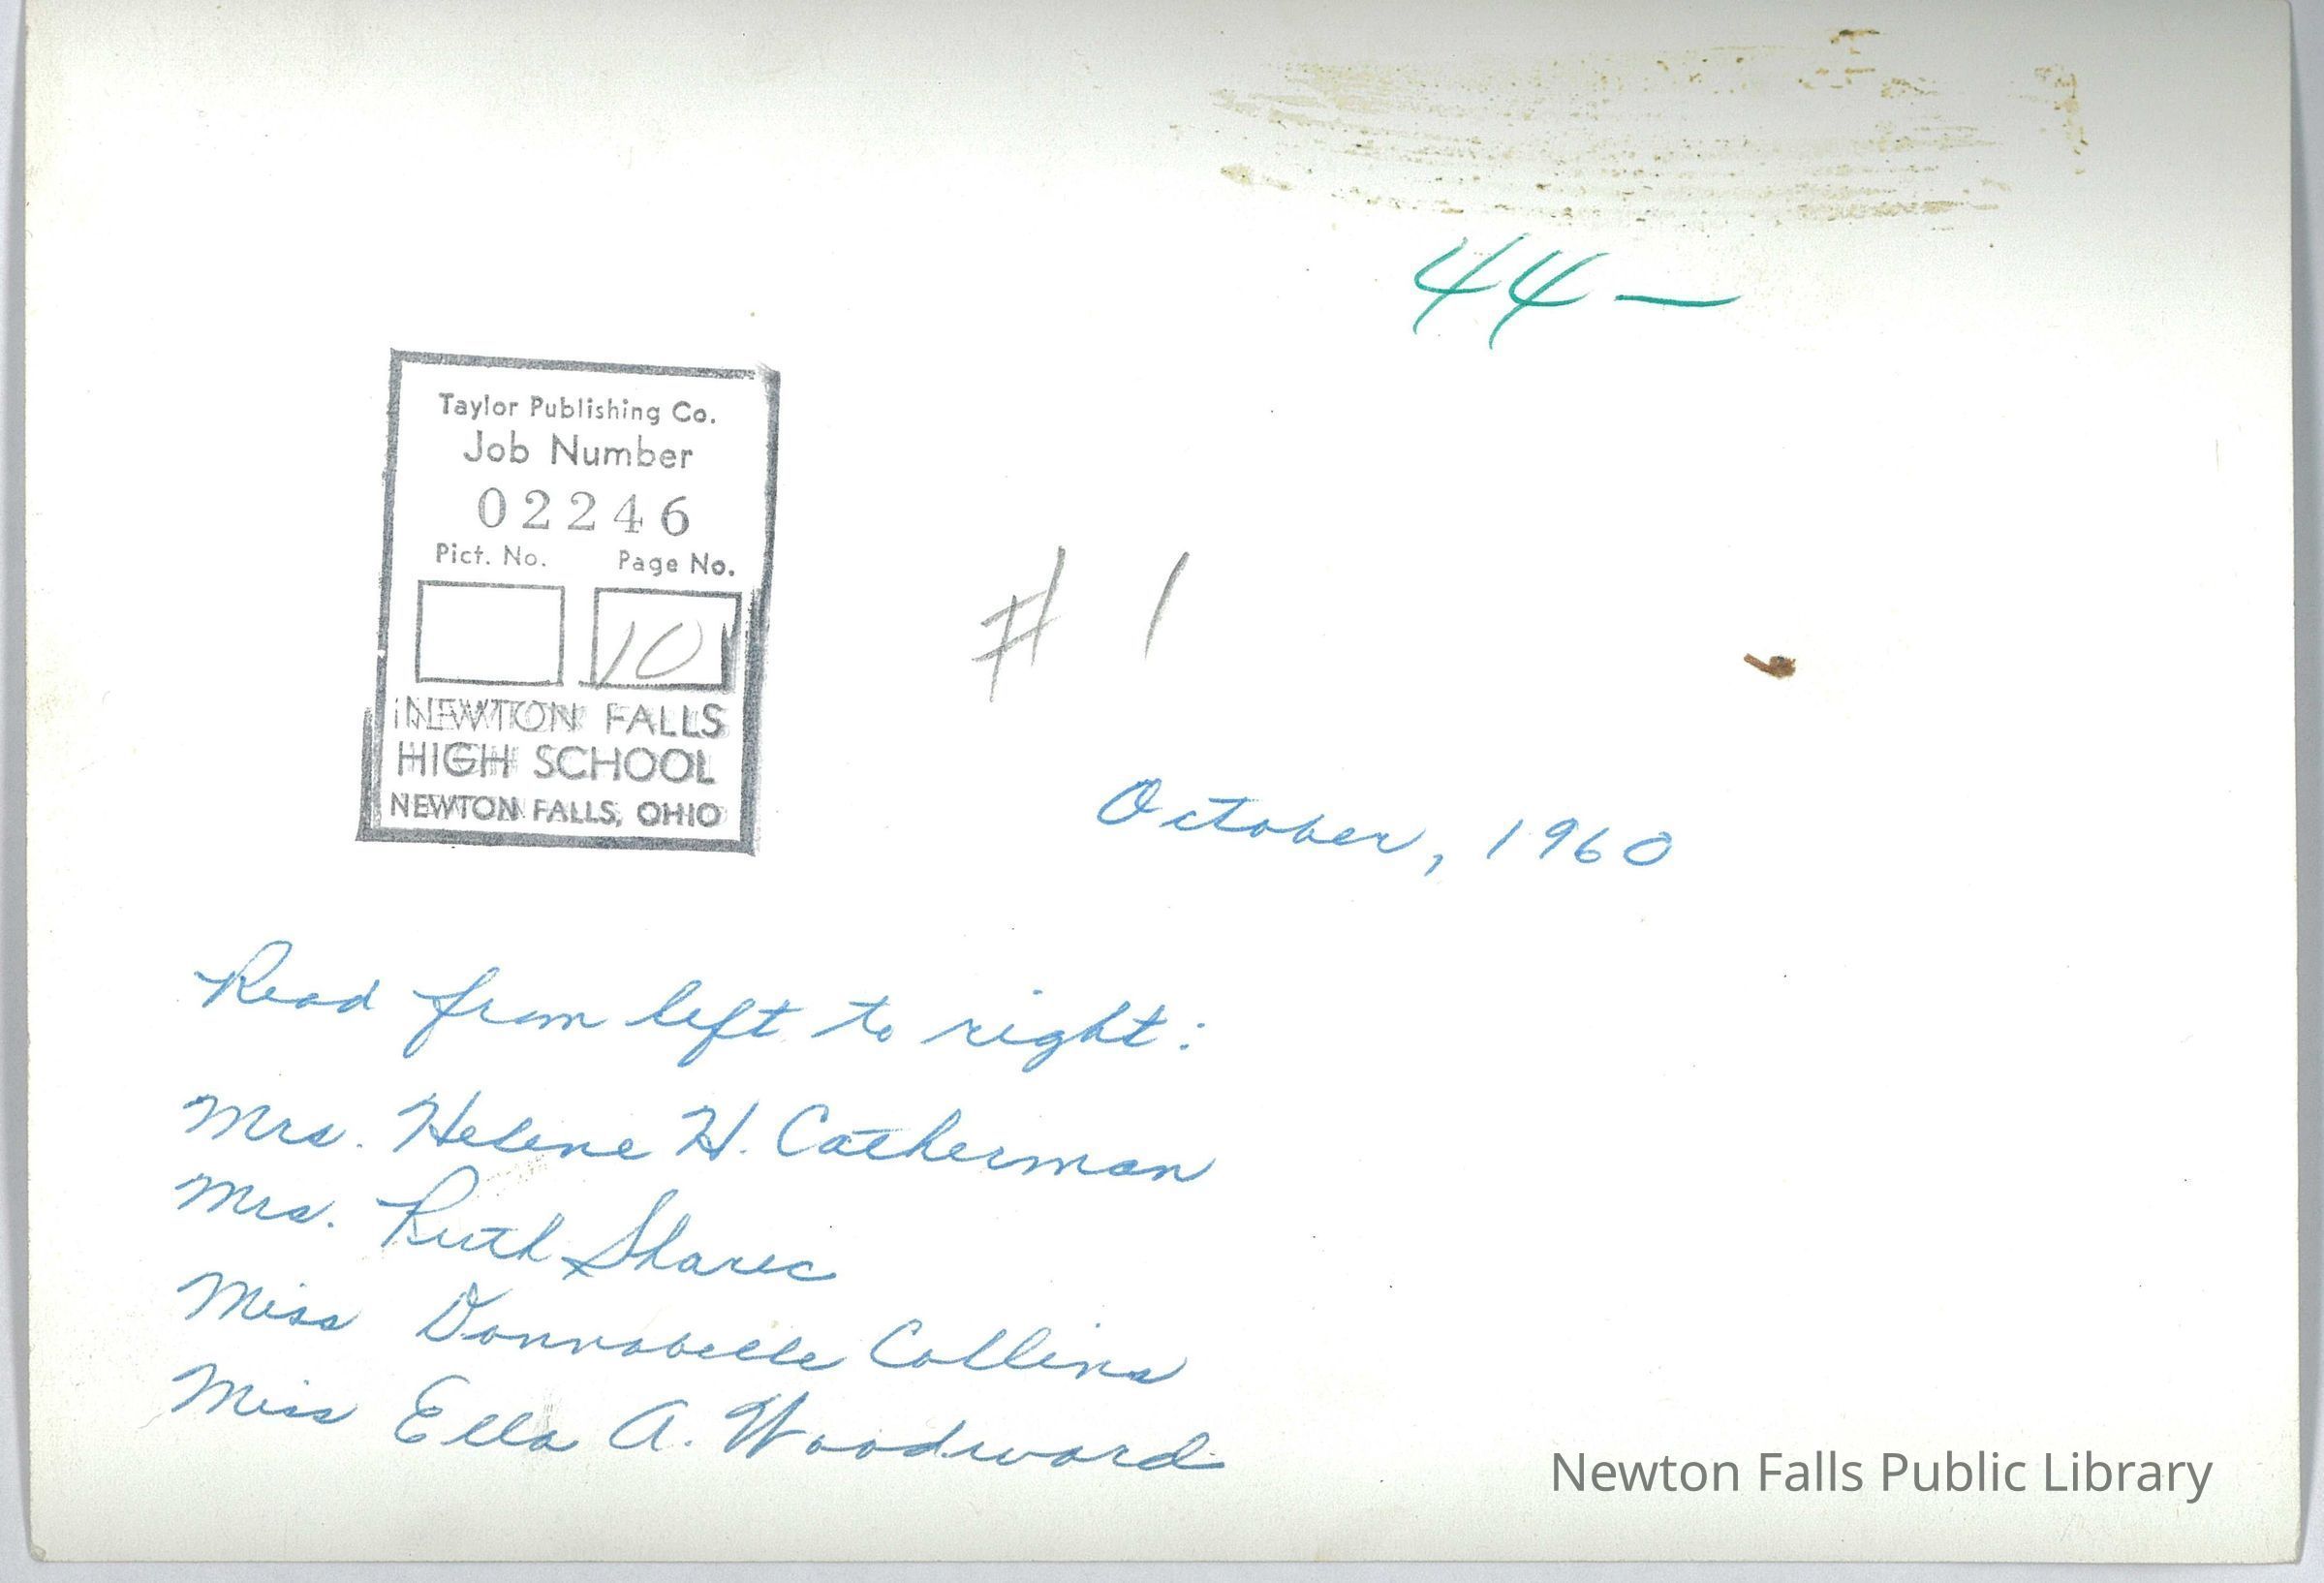 44—
Taylor Publishing Co.
Job Number
02246
Pict. No. Page No.
10
NEWTON FALLS
HIGH SCHOOL
NEWTON FALLS, OHIO
# 1
October, 1960
Read from left to right:
Mrs. Helene H. Catherman
Mrs. Ruth Sharec
Miss Donnabelle Collins
Miss Ella A. Woodward
Newton Falls Public Library